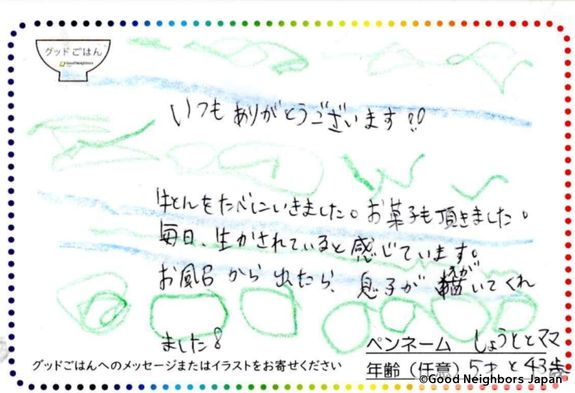 グッドごはん
Good Neighbors
いつもありがとうございます!!
牛どんをたべにいきました。お菓子も頂きました。
毎日、生かされていると感じています。
お風呂から出たら、息子が描いてくれ
えが
ました!
ペンネーム しょうととママ
グッドごはんへのメッセージまたはイラストをお寄せください
年齢(任意) 5才と43歳
©Good Neighbors Japan